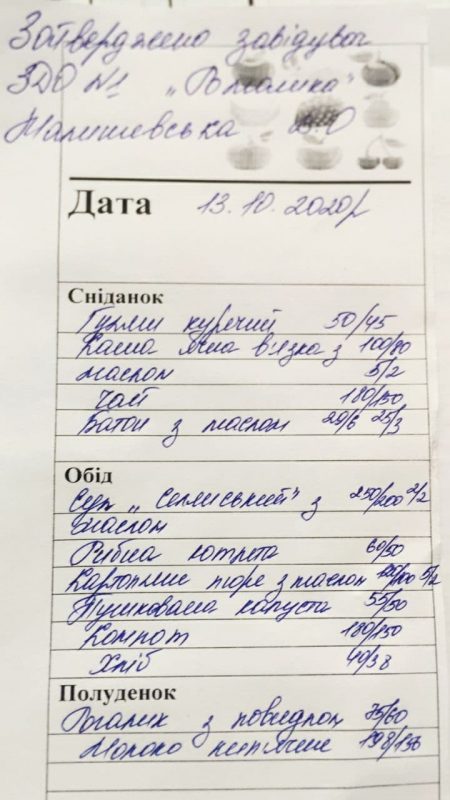 Затверджено завідувач
ЗДО №1 „Ромашка"
Малишевська
Дата 13.10.2020р
Сніданок
Гуляш курячий 50/45
Каша ячна в'язка з 100/80
маслом 5/2
Чай 180/150
Батон з маслом 25/3
Обід
Суп „Селянський" з 250/200 2/2
маслом
Рибна котлета 60/50
Картопляне пюре з маслом 5/2
Тушкована капуста 55/50
Компот 180/150
Хліб 40/38
Полуденок
Рогалик з повидлом 75/60
Молоко кип'ячене 198/156